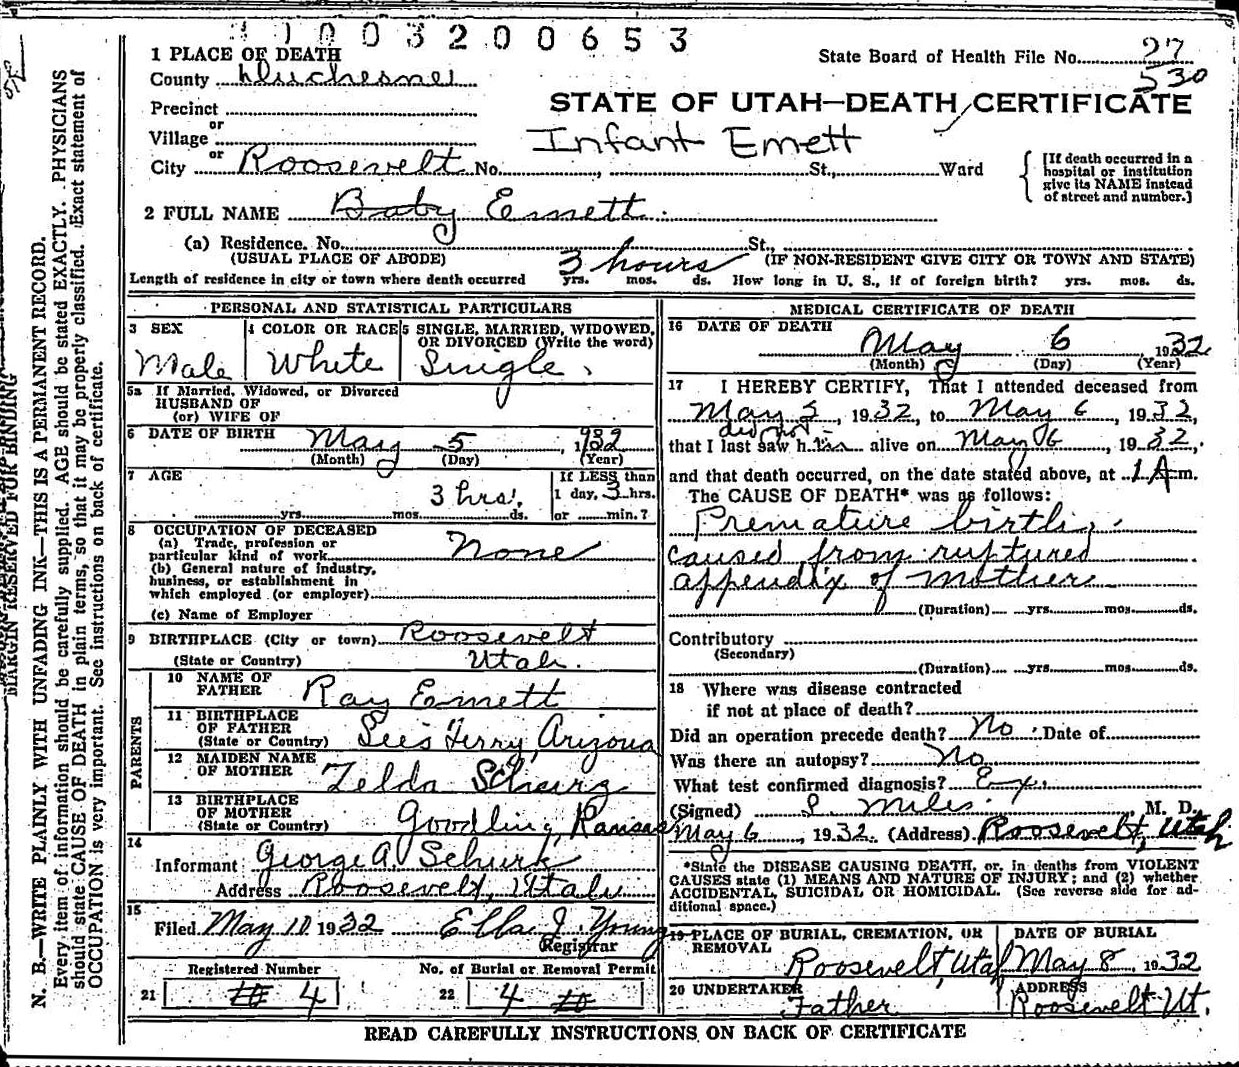 1003200653
1 PLACE OF DEATH
State Board of Health File No. 27
530
County Duchesne
STATE OF UTAH—DEATH CERTIFICATE
Precinct
or
Village
Infant Emett
or
City Roosevelt No. , St., Ward
[If death occurred in a hospital or institution give its NAME instead of street and number.]
2 FULL NAME Baby Emett
(a) Residence. No. St.,
(USUAL PLACE OF ABODE) 3 hours (IF NON-RESIDENT GIVE CITY OR TOWN AND STATE)
Length of residence in city or town where death occurred yrs. mos. ds. How long in U. S., if of foreign birth? yrs. mos. ds.
PERSONAL AND STATISTICAL PARTICULARS
3 SEX 4 COLOR OR RACE 5 SINGLE, MARRIED, WIDOWED,
OR DIVORCED (Write the word)
Male White Single
5a If Married, Widowed, or Divorced
HUSBAND OF
(or) WIFE OF
6 DATE OF BIRTH May 5, 1932
(Month) (Day) (Year)
7 AGE If LESS than
3 hrs. 1 day, 3 hrs.
yrs. mos. ds. or min.?
8 OCCUPATION OF DECEASED
(a) Trade, profession or
particular kind of work None
(b) General nature of industry,
business, or establishment in
which employed (or employer)
(c) Name of Employer
9 BIRTHPLACE (City or town) Roosevelt
(State or Country) Utah.
PARENTS
10 NAME OF
FATHER Ray Emett
11 BIRTHPLACE
OF FATHER
(State or Country) Lee's Ferry, Arizona
12 MAIDEN NAME
OF MOTHER Zelda
13 BIRTHPLACE
OF MOTHER
(State or Country) Kansas
14
Informant George A. Schurk
Address Roosevelt, Utah
15
Filed May 10 1932 Ella J. Young
Registrar
Registered Number No. of Burial or Removal Permit
21 10 4 22 4 10
MEDICAL CERTIFICATE OF DEATH
16 DATE OF DEATH
May 6 1932
(Month) (Day) (Year)
17 I HEREBY CERTIFY, That I attended deceased from
May 5, 1932, to May 6, 1932,
did not
that I last saw him alive on May 6, 1932,
and that death occurred, on the date stated above, at 1 A m.
The CAUSE OF DEATH* was as follows:
Premature birth
caused from ruptured
appendix of mother
(Duration) yrs. mos. ds.
Contributory
(Secondary)
(Duration) yrs. mos. ds.
18 Where was disease contracted
if not at place of death?
Did an operation precede death? No. Date of
Was there an autopsy? No
What test confirmed diagnosis? Ex.
(Signed) Miles, M. D.
May 6, 1932. (Address) Roosevelt, Utah
*State the DISEASE CAUSING DEATH, or, in deaths from VIOLENT
CAUSES state (1) MEANS AND NATURE OF INJURY; and (2) whether
ACCIDENTAL, SUICIDAL OR HOMICIDAL. (See reverse side for ad-
ditional space.)
19 PLACE OF BURIAL, CREMATION, OR DATE OF BURIAL
REMOVAL
Roosevelt, Utah May 8, 1932
20 UNDERTAKER ADDRESS
Father Roosevelt Ut.
READ CAREFULLY INSTRUCTIONS ON BACK OF CERTIFICATE
MARGIN RESERVED FOR BINDING
N. B.—WRITE PLAINLY WITH UNFADING INK—THIS IS A PERMANENT RECORD.
Every item of information should be carefully supplied. AGE should be stated EXACTLY. PHYSICIANS
should state CAUSE OF DEATH in plain terms, so that it may be properly classified. Exact statement of
OCCUPATION is very important. See instructions on back of certificate.